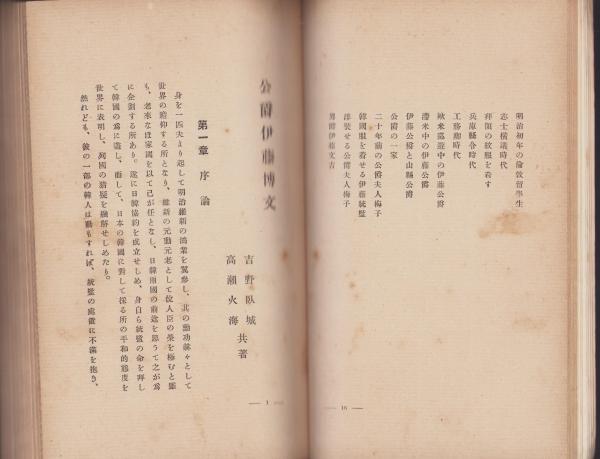 明治初年の倫敦留學生
志士横議時代
拜領の紋服を着す
兵庫縣令時代
工務卿時代
歐米巡遊中の伊藤公爵
滯米中の伊藤公爵
伊藤公爵と山縣公爵
公爵の一家
二十年前の公爵夫人梅子
韓國服を着せる伊藤統監
洋裝せる公爵夫人梅子
男爵伊藤文吉
— 16 —
公爵伊藤博文
吉野臥城
高瀬火海
共著
第一章 序論
身を一匹夫より起して明治維新の鴻業を翼參し、其の勳功赫々として
世界の瞻仰する所となり、維新の元勳元老として位人臣の榮を極むと雖
も、老來なほ家國を以て己が任となし、日韓兩國の前途を思うて之が爲
に企劃する所あり。遂に日韓協約を成立せしめ、身自ら統監の命を拜し
て韓國の爲に盡し、而して、日本の韓國に對して採る所の平和的態度を
世界に表明し、列國の猜疑を融解せしめたり。
然れども、彼の一部の韓人は動もすれば、統監の處置に不滿を抱き、
— 1 —